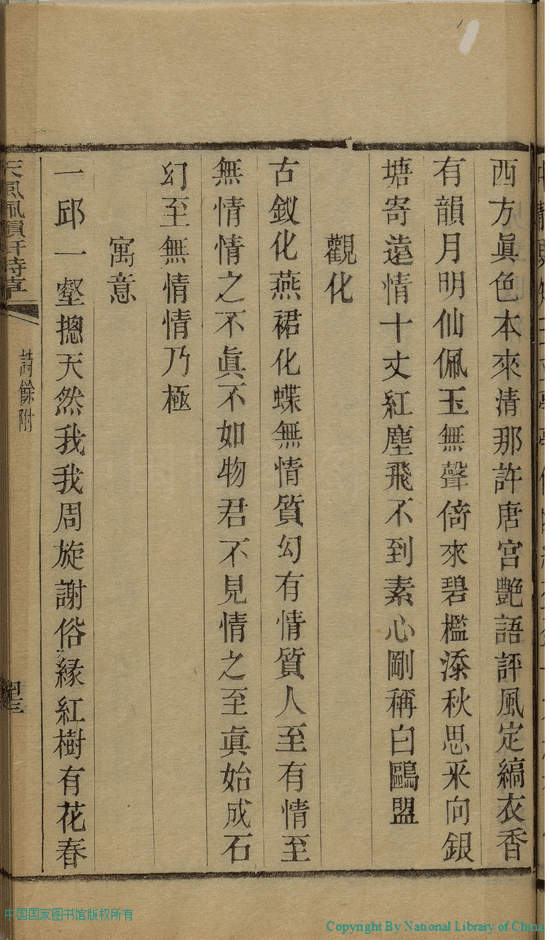 西方眞色本來清那許唐宮艷語評風定縞衣香
有韻月明仙佩玉無聲倚來碧檻添秋思采向銀
塘寄遠情十丈紅塵飛不到素心剛稱白鷗盟
觀化
古釵化燕裙化蝶無情質幻有情質人至有情至
無情情之不眞不如物君不見情之至眞始成石
幻至無情情乃極
寓意
一邱一壑摠天然我我周旋謝俗緣紅樹有花春
詩餘附
中国国家图书馆版权所有
Copyright By National Library of China